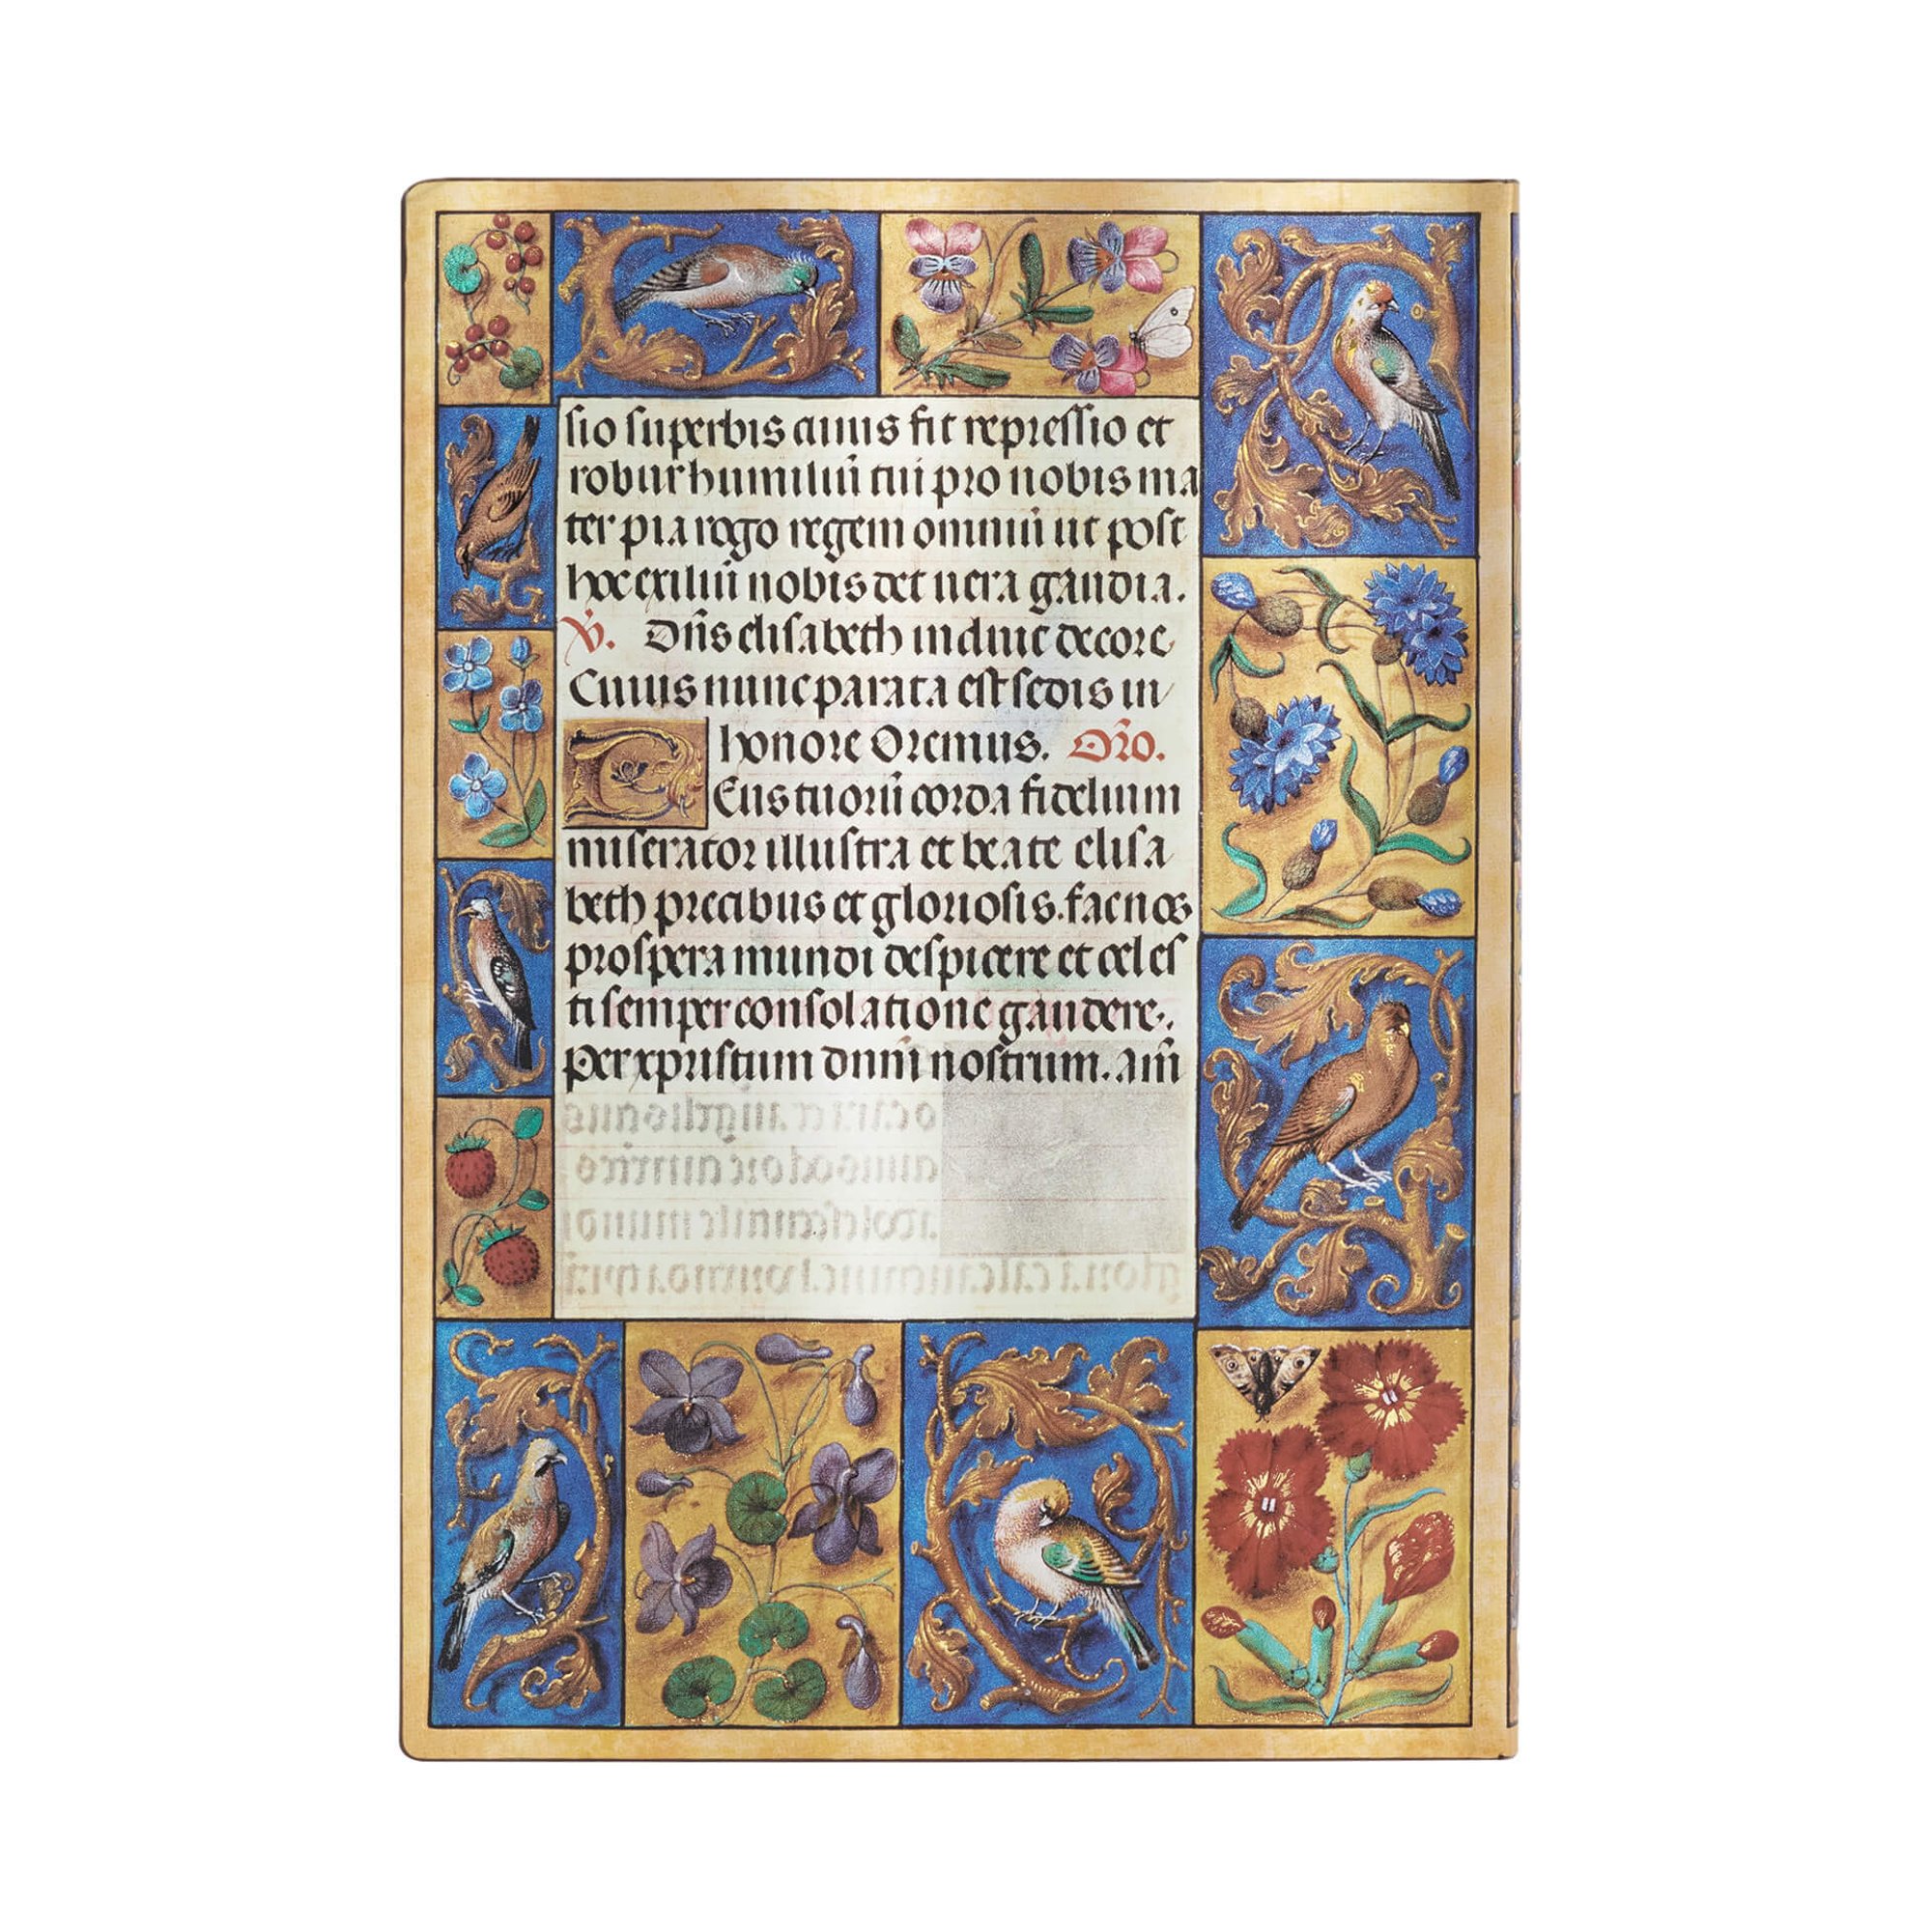 sio superbis cuius fit repressio et
robur humiliū tui pro nobis ma
ter pia rogo regem omniū ut post
hoc exiliū nobis det uera gaudia.
V̊. Dn̄s elisabeth induit decore
Cuius nunc parata est sedis in
honore Oremus. Or̄o.
Deus tuorū corda fidelium
miserator illustra et beate elisa
beth precibus et gloriosis.fac nos
prospera mundi despicere et celes
ti semper consolatione gaudere.
Per xpristum dnm̄ nostrum. Am̄